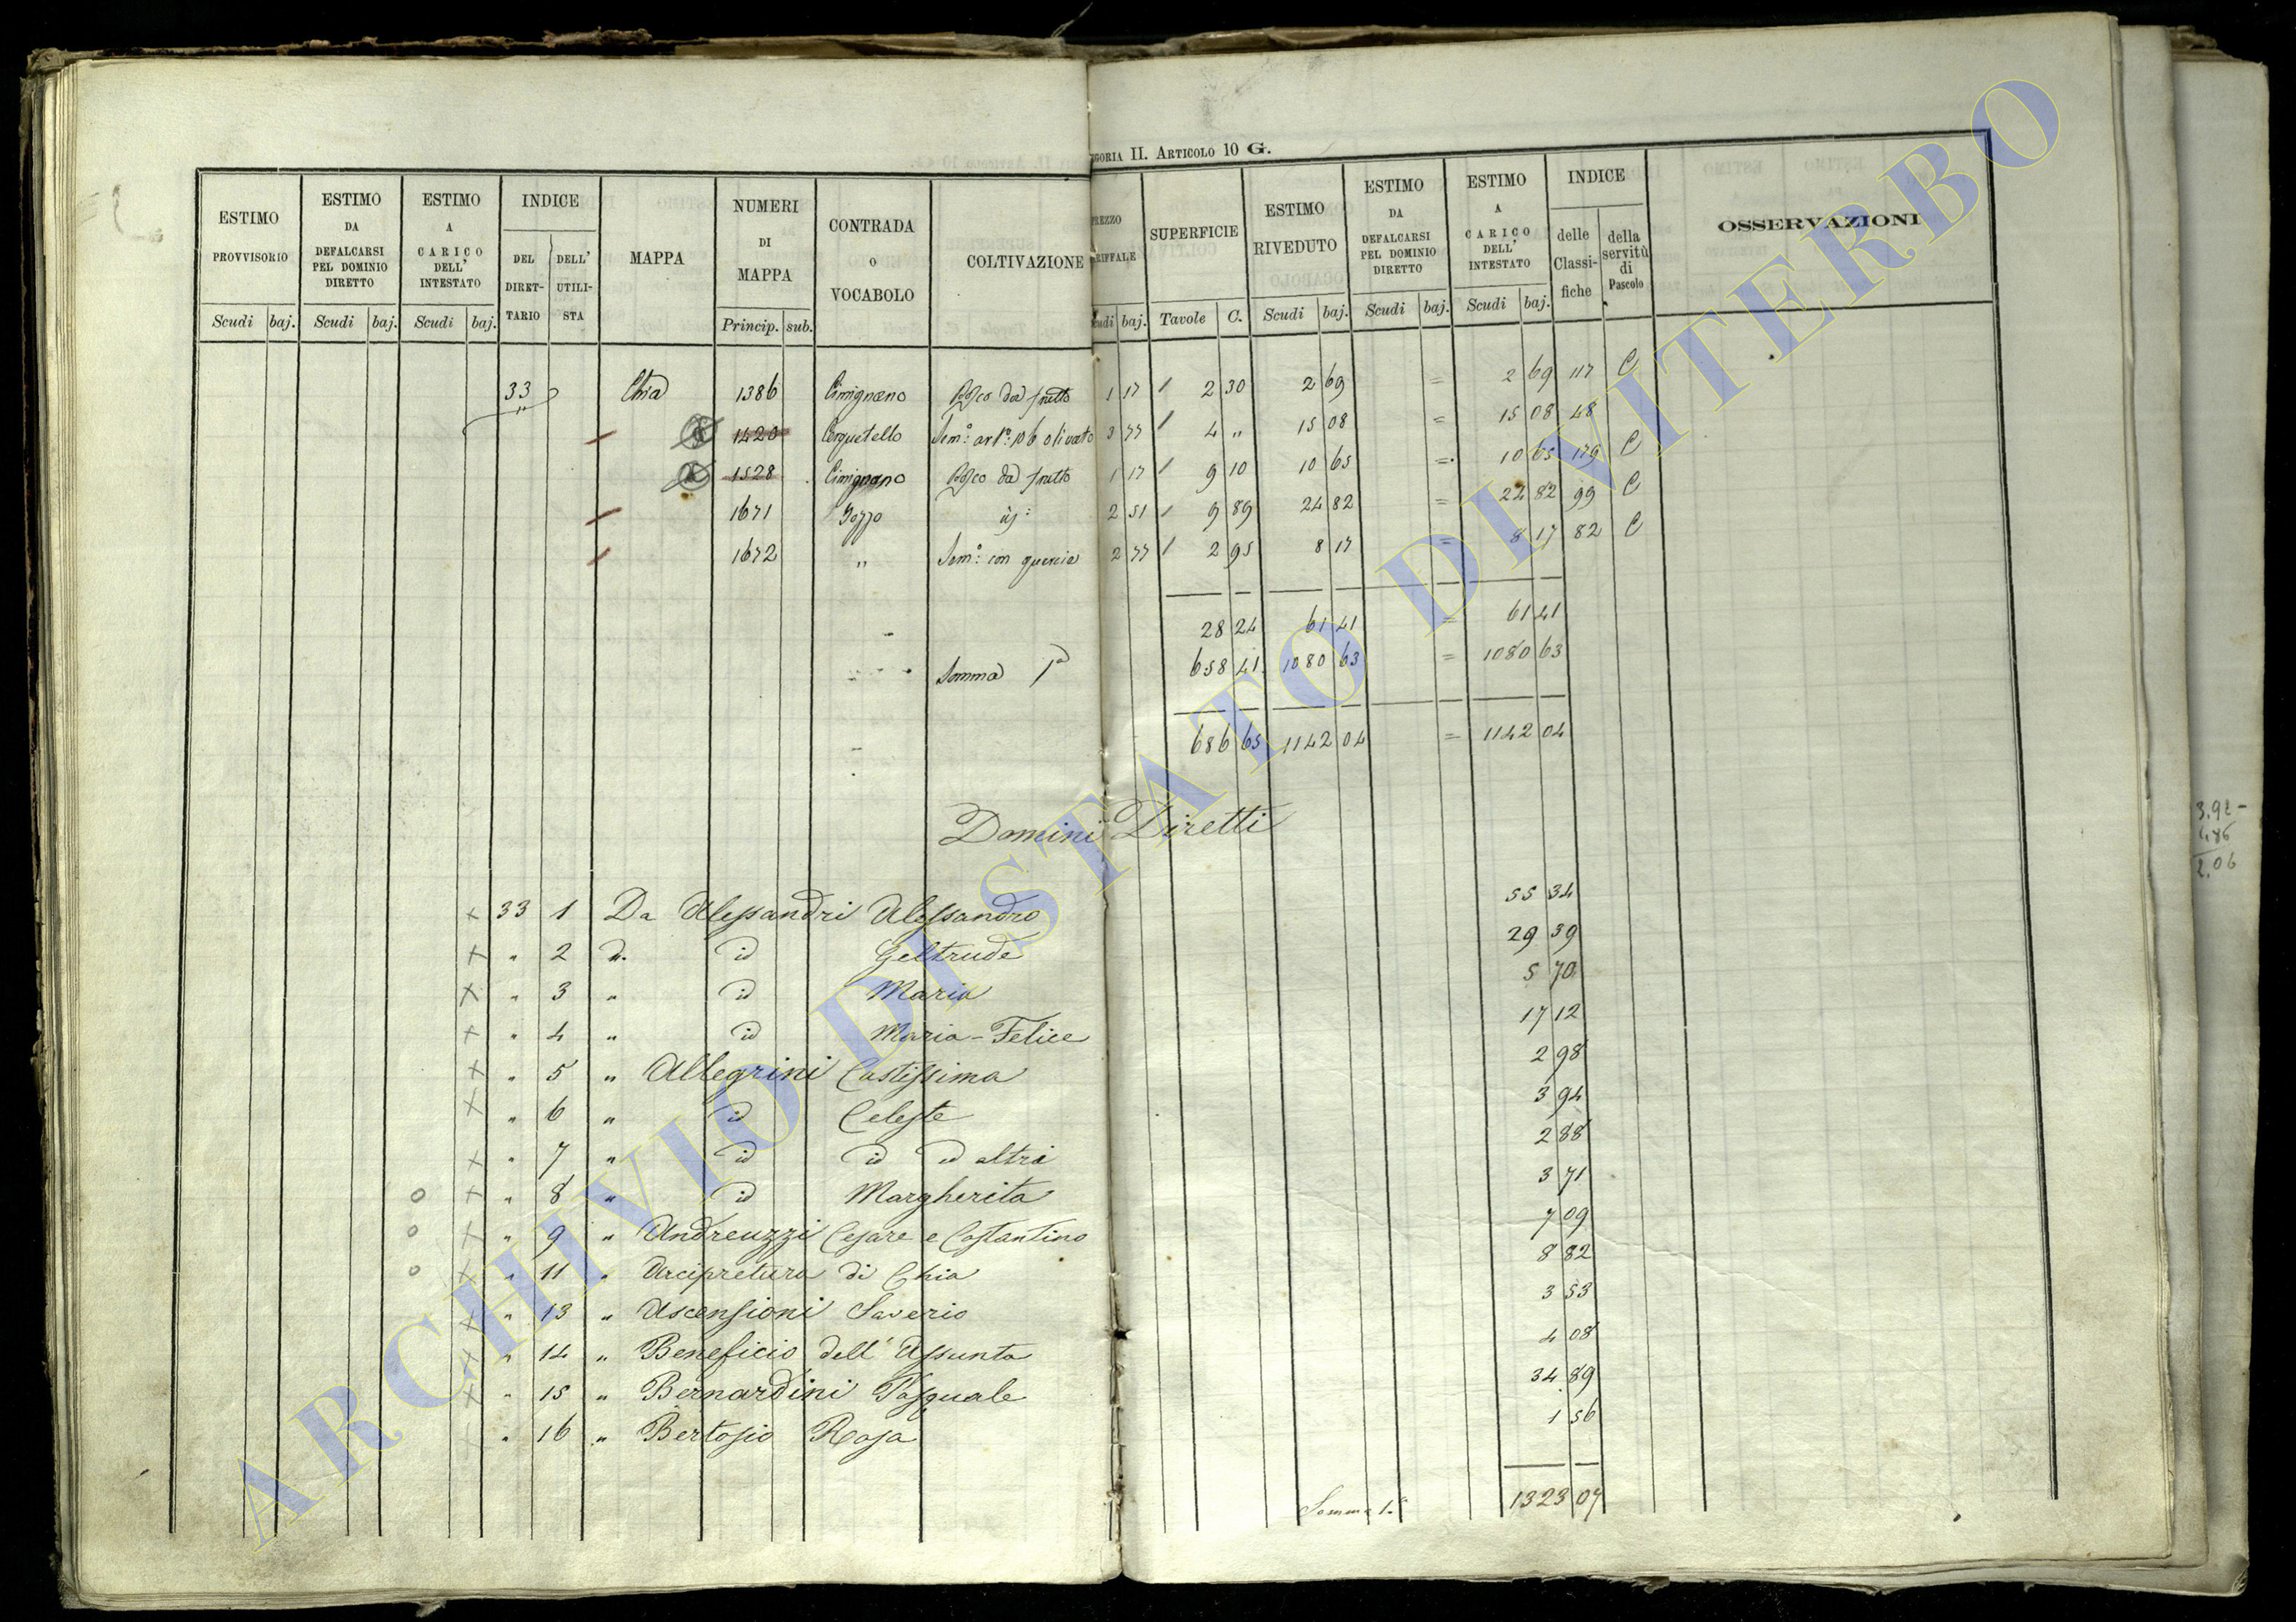 GORIA II. ARTICOLO 10 G.
ESTIMO PROVVISORIO Scudi baj. ESTIMO DA DEFALCARSI PEL DOMINIO DIRETTO Scudi baj. ESTIMO A CARICO DELL' INTESTATO Scudi baj. INDICE DEL DIRETTARIO DELL' UTILISTA MAPPA NUMERI DI MAPPA Princip. sub. CONTRADA O VOCABOLO COLTIVAZIONE REZZO RIFFALE cudi baj. SUPERFICIE Tavole C. ESTIMO RIVEDUTO Scudi baj. ESTIMO DA DEFALCARSI PEL DOMINIO DIRETTO Scudi baj. ESTIMO A CARICO DELL' INTESTATO Scudi baj. INDICE delle Classifiche della servitù di Pascolo OSSERVAZIONI
33 Chia 1386 Cimignano Bosco da frutto 1 17 / 2 30 2 69 = 2 69 117 C
" 1420 Cerquetello Sem.º olivato 3 77 / 4 " 15 08 = 15 08 48
1528 Cimignano Bosco da frutto 1 17 / 9 10 10 65 = 10 65 179 C
1671 Pozzo id: 2 51 / 9 89 24 82 = 24 82 99 C
1672 " Sem.º con quercie 2 77 / 2 95 8 17 = 8 17 82 C
28 24 61 41 = 61 41
Somma 1ª 658 41 1080 63 = 1080 63
686 65 1142 04 = 1142 04
Domini Diretti
x 33 1 Da Alessandri Alessandro 55 34
x " 2 " id Geltrude 29 39
x " 3 " id Maria 5 70
x " 4 " id Maria-Felice 17 12
x " 5 " Allegrini Castissima 2 98
x " 6 " id Celeste 3 94
x " 7 " id id ed altri 2 88
o x " 8 " id Margherita 3 71
o x " 9 " Andreuzzi Cesare e Costantino 7 09
o x " 11 " Arcipretura di Chia 8 82
x " 13 " Ascensioni Saverio 3 53
x " 14 " Beneficio dell' Assunta 4 08
x " 15 " Bernardini Pasquale 34 89
x " 16 " Bertosio Rosa 1 56
Somma 1.ª 1323 07
3.92 -
1.86
2.06
ARCHIVIO DI STATO DI VITERBO